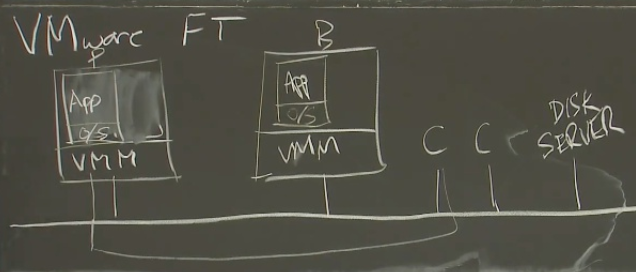 VMware FT
P
B
App
O/S
VMM
App
O/S
VMM
C
C
DISK
SERVER